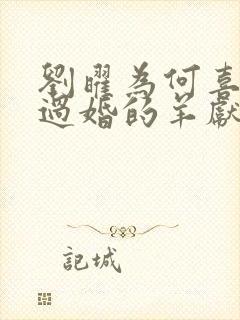 劉曜為何喜
過婚的羊獻
記城